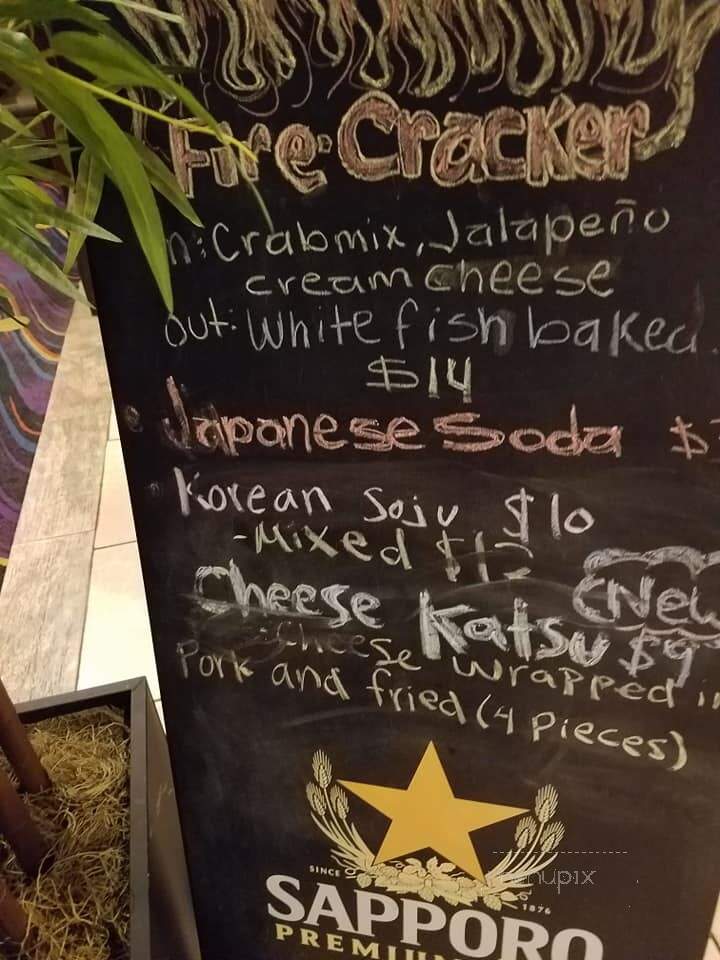 Fire Cracker
n: Crabmix, Jalapeño
cream cheese
out: White fish baked
$14
Japanese Soda $
Korean Soju $10
-Mixed $12
Cheese Katsu $9
(New
Cheese wrapped in
Pork and fried (4 Pieces)
SINCE 1876
SAPPORO
PREMIUM
menupix